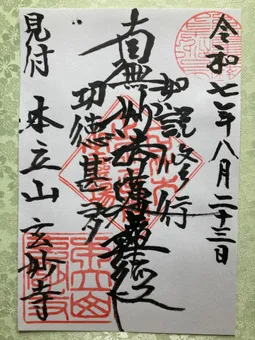 令和七年八月二十三日
如説修行
南無妙法蓮華経
功徳甚多
見付 木立山 玄妙寺